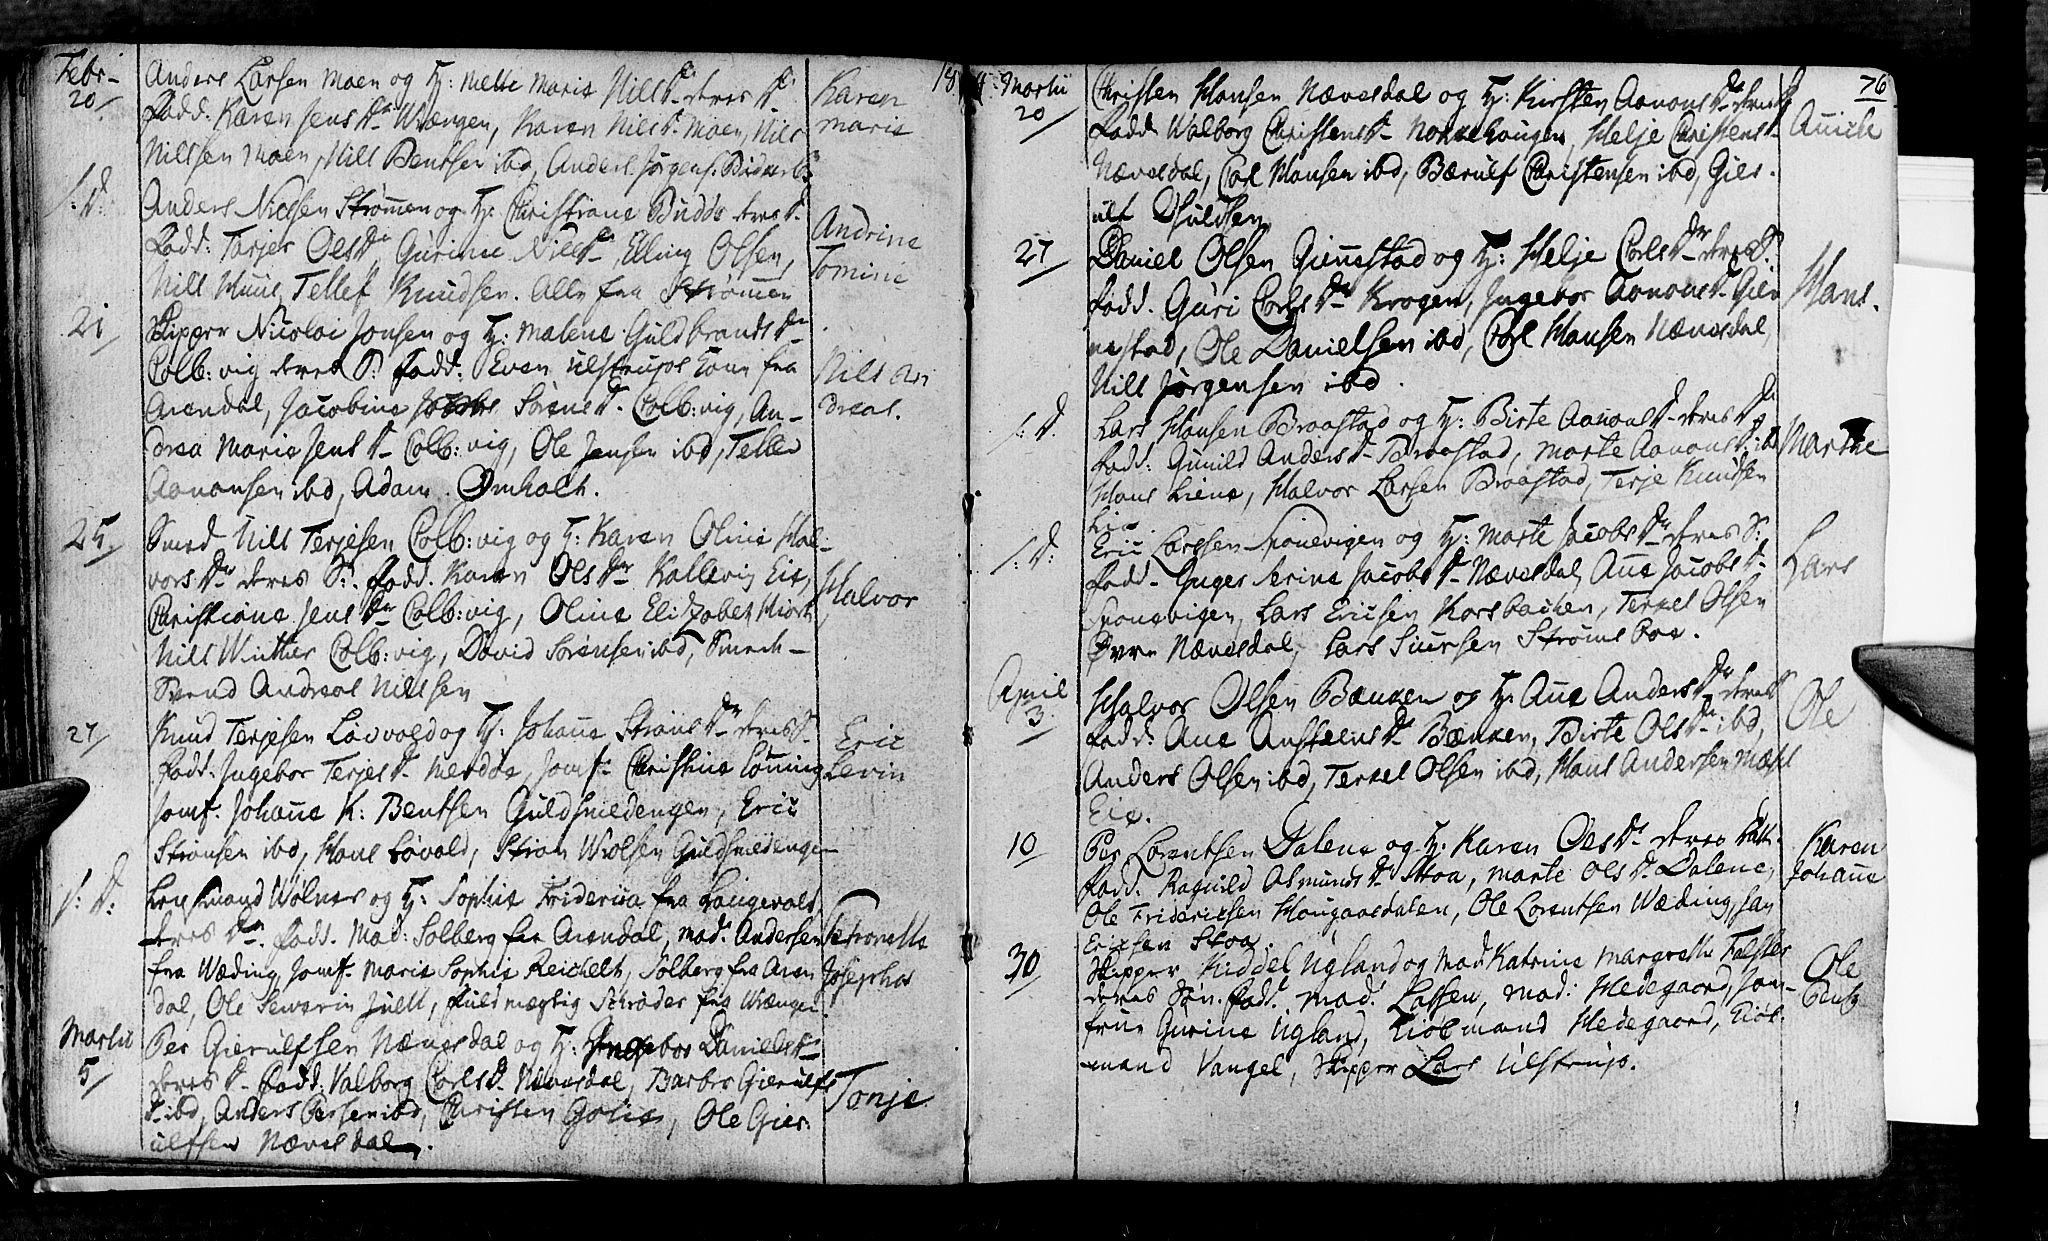 Febr-
20/
Anders Larsen Moen og H: Mette Marie Nils D. deres D.
Fadd. Karen Jens Dr Wrængen, Karen Nils D. Moen, Nils
Nilssen Moen, Nils Bentsen ibd, Anders Jørgens.
Karen
Marie
s: D:
Anders Nielsen Strømmen og H: Christiane Budds deres D.
Fadd: Tarjer Ols Dr, Gurine Niels D, Elling Olsen,
Nils Muus, Tellef Knudsen. Alle fra Strømmen
Andrine
Tomine
21/
Skipper Nicolai Jonsen og H: Malene Guldbrands Dr
Colb:vig deres S: Fadd: Even Ulstrups Kone fra
Arendal, Jacobine Sørens D. Colb:vig, An-
drea Marie Jens D- Colb:vig, Ole Jensen ibd, Tellev
Aanonsen ibd, Adam Omholt.
Nils An
dreas.
25/
Smed Nils Terjesen Colb:vig og H: Karen Oline Hal-
vors Dr deres S:. Fadd. Karen Ols Dr Kallevig Eie,
Christiane Jens Dr Colb:vig, Oline Elizabet Hiort
Nils Winther Colb:vig, David Sørensen ibd, Smed-
Svend Andreas Nilssen
Halvor
27/
Knud Terjesen Løvvold og H: Johanne Strans Dr deres S.
Fadd. Ingebor Terjes D- Merdøe, Jomf. Christine Lønning
Jomf. Johanne K: Bentsen Guldsmedengen, Eric
Stransen ibd, Hans Løvold, Stran Wrolsen Guldsmedengen
Eric
Levin
s: D:
Lensmand Wølner og H: Sophie Friderica fra Langevold
deres Dr. Fadd. Mad: Solberg fra Arendal, Mad. Andersen
fra Wæding, Jomf. Marie Sophie Reichelt, Solberg fra Aren
dal, Ole Severin Juell, Fuldmægtig Schrøder fra Wrængen
Petronelle
Josepha
Martii
5/
Per Gierulfsen Nævesdal og H: Ingebor Daniels D-
deres D- Fadd. Valborg Carls D. Nævesdal, Barbro Gierulfs
D. ibd, Anders Persen ibd, Christen Golie, Ole Gier-
ulfsen Nævesdal.
Tonje
Martii
20/
76
Christen Hansen Nævesdal og H: Kirsten Aanons Dr deres D
Fadd. Walborg Christens D- Norkehaugen, Helje Christens D-
Nævesdal, Carl Hansen ibd, Bærulf Christensen ibd, Gier-
ulf
Annich
27/
Daniel Olsen Giennestad og H: Helje Carls Dr deres S.
Fadd. Guri Carls Dr Krogen, Ingebor Aanons D- Gien
nestad, Ole Danielsen ibd, Carl Hansen Nævesdal,
Nils Jørgensen ibd.
Hans.
s: D.
Lars Hansen Braastad og H: Birte Aanons D- deres Dr
Fadd: Gunild Anders D- Braastad, Marte Aanons D: ibd
Hans Liene, Halvor Larsen Braastad, Terje Knudsen
Lie
Marthe
s: D:
Eric Larssen Spanevigen og H: Marte Jacobs Dr deres S:
Fadd- Inger Serine Jacobs D- Nævesdal, Anne Jacobs D-
Spanevigen, Lars Ericsen Korsbacken, Terkel Olsen
Øvre Nævesdal, Lars Siursen Strøms Boe.
Lars
April
3.
Halvor Olsen Bænken og H: Anne Anders Dr deres S
Fadd: Ane Anstens D- Bænken, Birte Ols Dr ibd,
Anders Olsen ibd, Terkel Olsen ibd, Hans Andersen Næsk
Eie.
Ole
10
Per Lorentsen Dalene og H: Karen Ols D- deres Datt.
Fadd. Ragnild Asmunds Dr Stoa, Marte Ols D. Dalene,
Ole Fridericsen Haugaasdalen, Ole Lorentsen Wæding, Jan
Ericsen Stoa.
Karen
Johanne
30
Skipper Kiddel Ugland og Mad Katrine Margrethe Falster
deres Søn. Fadd. Mad. Lassen, Mad: Hedegaard, Jom-
frue Gurine Ugland, Kiøbmand Hedegaard, Kiøb-
mand Vangel, Skipper Lars Ulstrup.
Ole